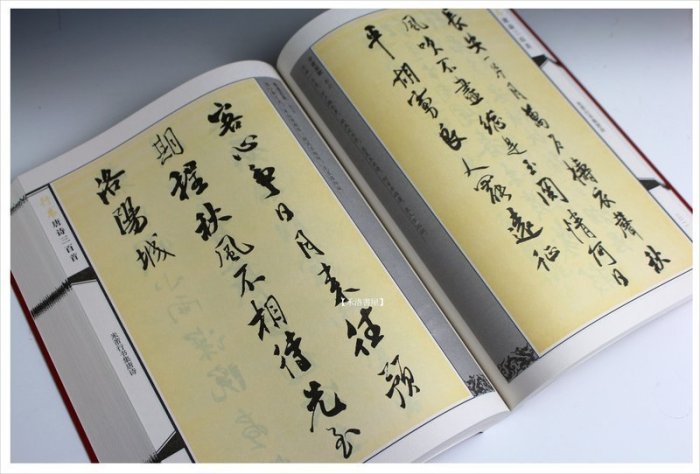 長安一片月萬戶擣衣聲秋
風吹不盡總是玉關情何日
平胡虜良人罷遠征
客心爭日月来往預
期程秋風不相待先至
洛陽城
唐诗三百首
米芾行书集唐诗
【禾洛書屋】